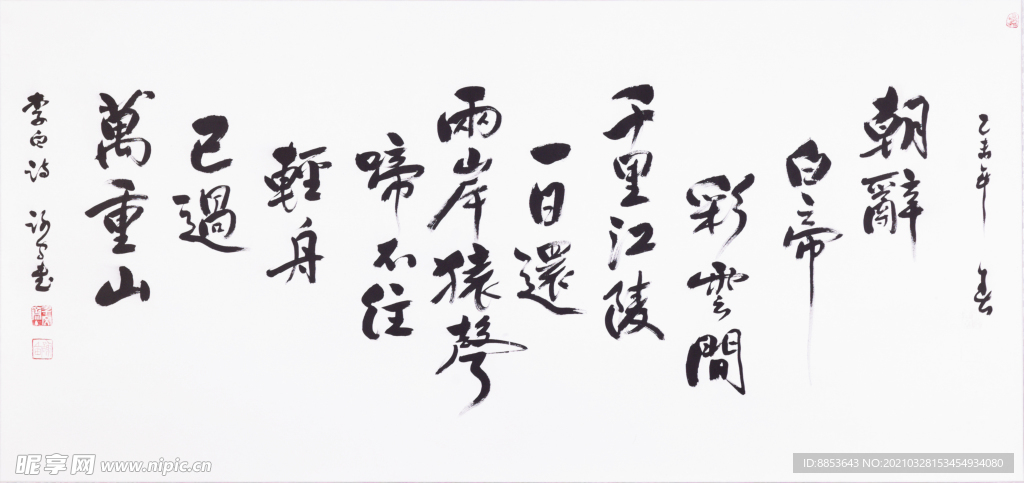 乙未年 春
朝辭
白帝
彩雲間
千里江陵
一日還
兩岸猿聲
啼不住
輕舟
已過
萬重山
李白詩
昵享网 www.nipic.cn
ID:8853643 NO:20210328153454934080